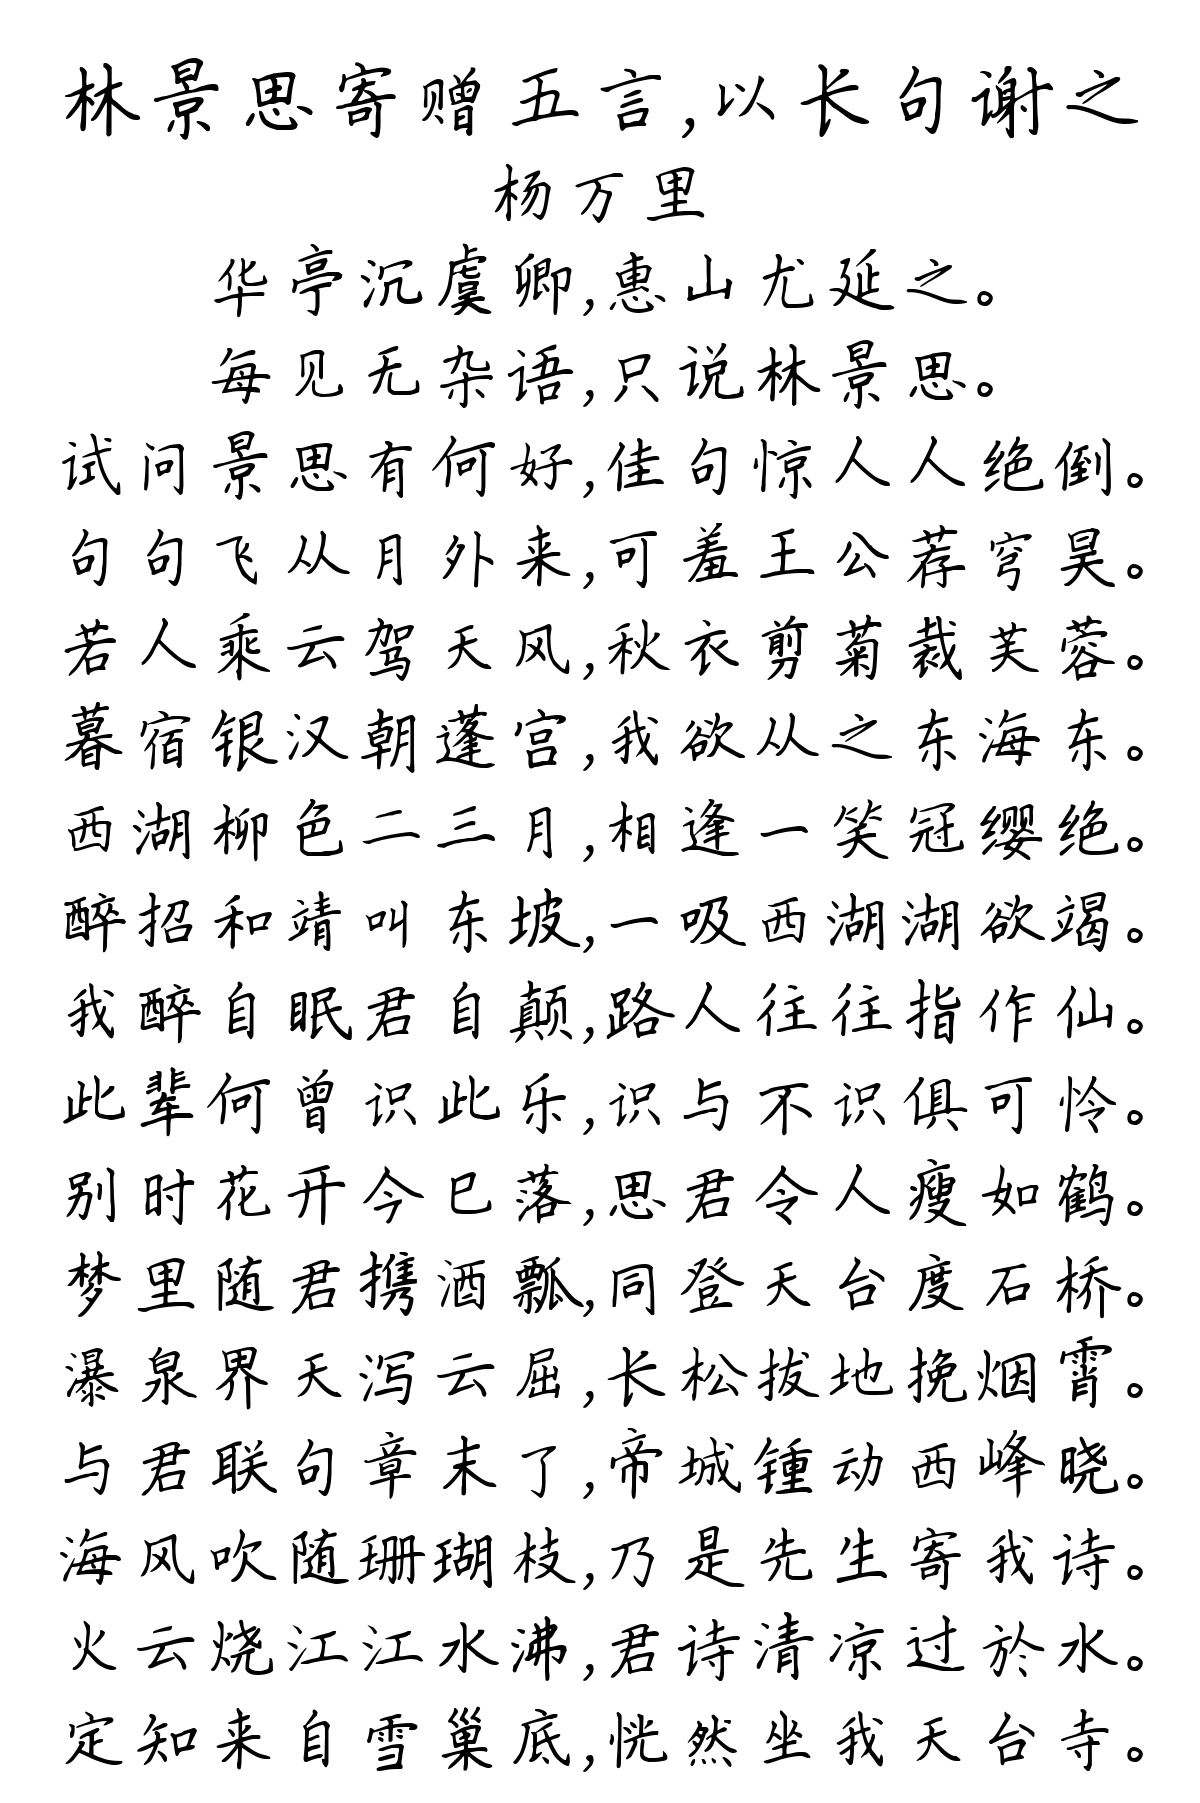 林景思寄赠五言,以长句谢之
杨万里
华亭沉虞卿,惠山尤延之。
每见无杂语,只说林景思。
试问景思有何好,佳句惊人人绝倒。
句句飞从月外来,可羞王公荐穹昊。
若人乘云驾天风,秋衣剪菊裁芙蓉。
暮宿银汉朝蓬宫,我欲从之东海东。
西湖柳色二三月,相逢一笑冠缨绝。
醉招和靖叫东坡,一吸西湖湖欲竭。
我醉自眠君自颠,路人往往指作仙。
此辈何曾识此乐,识与不识俱可怜。
别时花开今已落,思君令人瘦如鹤。
梦里随君携酒瓢,同登天台度石桥。
瀑泉界天泻云屈,长松拔地挽烟霄。
与君联句章末了,帝城锺动西峰晓。
海风吹随珊瑚枝,乃是先生寄我诗。
火云烧江江水沸,君诗清凉过於水。
定知来自雪巢底,恍然坐我天台寺。